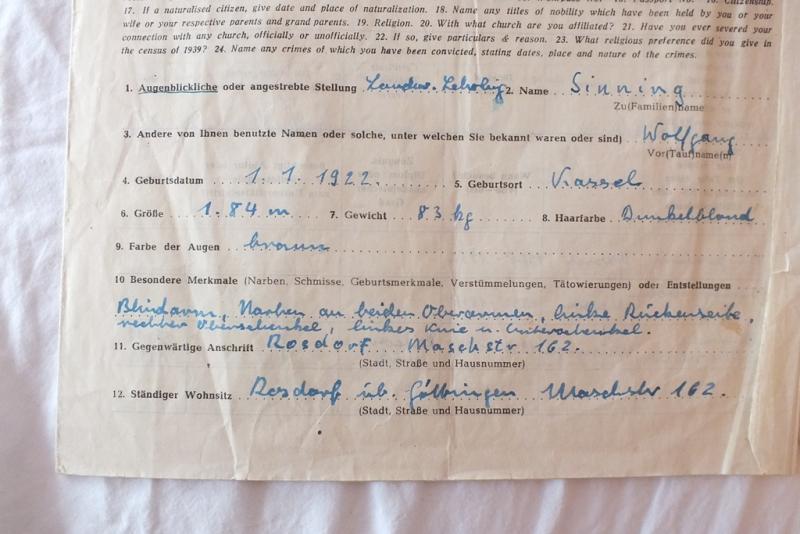 17. If a naturalised citizen, give date and place of naturalization. 18. Name any titles of nobility which have been held by you or your
wife or your respective parents and grand parents. 19. Religion. 20. With what church are you affiliated? 21. Have you ever severed your
connection with any church, officially or unofficially. 22. If so, give particulars & reason. 23. What religious preference did you give in
the census of 1939? 24. Name any crimes of which you have been convicted, stating dates, place and nature of the crimes.
1. Augenblickliche oder angestrebte Stellung Landw. Lehrling 2. Name Sinning
Zu(Familien)name
3. Andere von Ihnen benutzte Namen oder solche, unter welchen Sie bekannt waren oder sind) Wolfgang
Vor(Tauf)name(n)
4. Geburtsdatum 1.1.1922. 5. Geburtsort Kassel
6. Größe 1.84 m 7. Gewicht 83 kg 8. Haarfarbe Dunkelblond
9. Farbe der Augen braun
10 Besondere Merkmale (Narben, Schmisse, Geburtsmerkmale, Verstümmelungen, Tätowierungen) oder Entstellungen
Blinddarm, Narben an beiden Oberarmen, linke Rückenseite,
rechter Oberschenkel, linkes Knie u. Unterschenkel.
11. Gegenwärtige Anschrift Rosdorf Maschstr 162.
(Stadt, Straße und Hausnummer)
12. Ständiger Wohnsitz Rosdorf üb. Göttingen Maschstr 162.
(Stadt, Straße und Hausnummer)